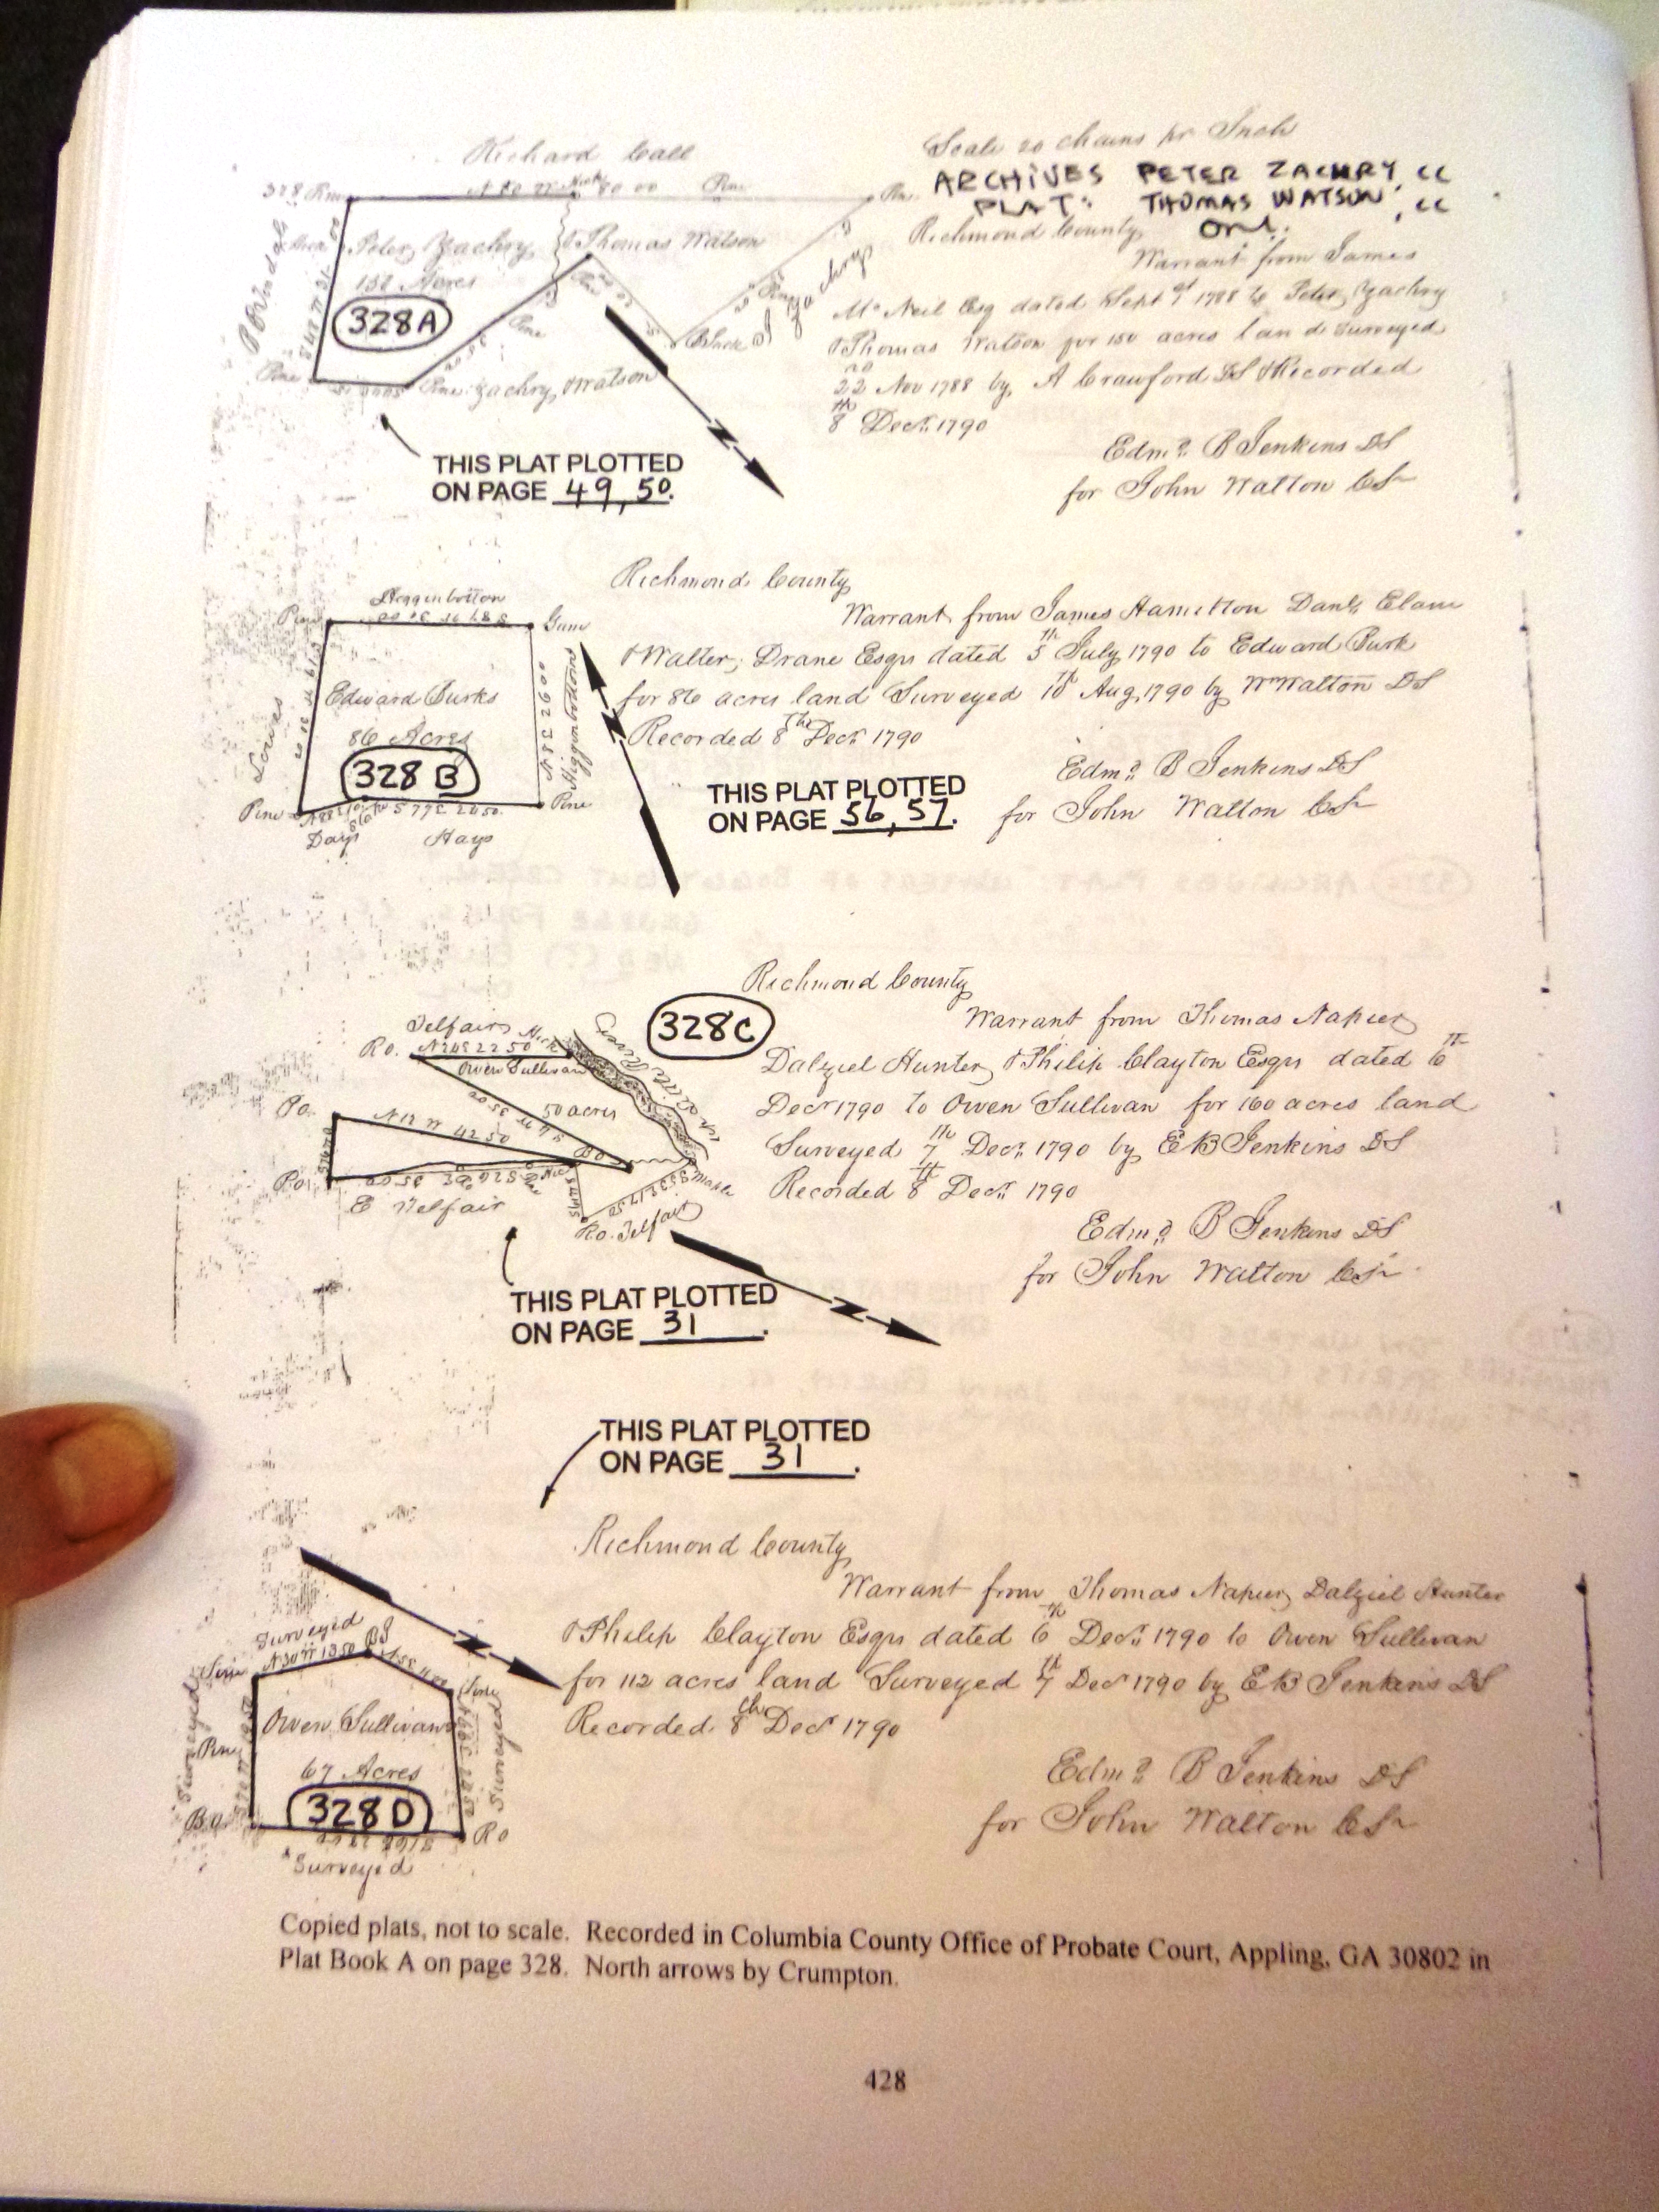 Scale 20 chains pr Inch
Richard Call
ARCHIVES PETER ZACHRY, CC
PLAT: THOMAS WATSON, CC
ONL.
328 Pine N 80 W 80 00 Pine
Peter Zachry & Thomas Watson
150 Acres
328A
Pine
Pine
Black
Zachry
Pine Pine Zachry, Watson
Richmond County
Warrant from James
McNeil Esq dated Sept 1788 to Peter Zachry
& Thomas Watson for 150 acres land Surveyed
22nd Nov 1788 by A Crawford DS & Recorded
8th Decr 1790
Edmd B Jenkins DS
for John Walton CS
THIS PLAT PLOTTED
ON PAGE 49, 50.
Higginbotton
Pine Gum
Edward Burks
86 Acres
328 B
Lowes
Higginbottons
N 83 E 26 00
Pine S 77 E 20 50 Pine
Days Hays
Richmond County
Warrant from James Hamilton Danl. Elam
& Walter, Drane Esqrs dated 5th July 1790 to Edward Burk
for 86 acres land Surveyed 10th Aug 1790 by Wm Walton DS
Recorded 8th Decr 1790
Edmd B Jenkins DS
for John Walton CS
THIS PLAT PLOTTED
ON PAGE 56, 57.
328C
Telfairs
Little River
R.O. 22 50
Owen Sullivan
50 acres
P.O. N 12 W 42 50
P.O.
Maple
E Telfair
R.O. Telfair
Richmond County
Warrant from Thomas Napier
Dalziel Hunter, & Philip Clayton Esqrs dated 6th
Decr 1790 to Owen Sullivan for 160 acres land
Surveyed 7th Decr 1790 by E B Jenkins DS
Recorded 8th Decr 1790
Edmd B Jenkins DS
for John Walton CS
THIS PLAT PLOTTED
ON PAGE 31.
THIS PLAT PLOTTED
ON PAGE 31.
Surveyed
N 30 W 13 50
Owen Sullivan
67 Acres
328D
Pine
Surveyed
Surveyed
B.O. R O
Surveyed
Richmond County
Warrant from Thomas Napier, Dalziel Hunter
& Philip Clayton Esqrs dated 6th Decr 1790 to Owen Sullivan
for 112 acres land Surveyed 7th Decr 1790 by E B Jenkins DS
Recorded 8th Decr 1790
Edmd B Jenkins DS
for John Walton CS
Copied plats, not to scale. Recorded in Columbia County Office of Probate Court, Appling, GA 30802 in
Plat Book A on page 328. North arrows by Crumpton.
428